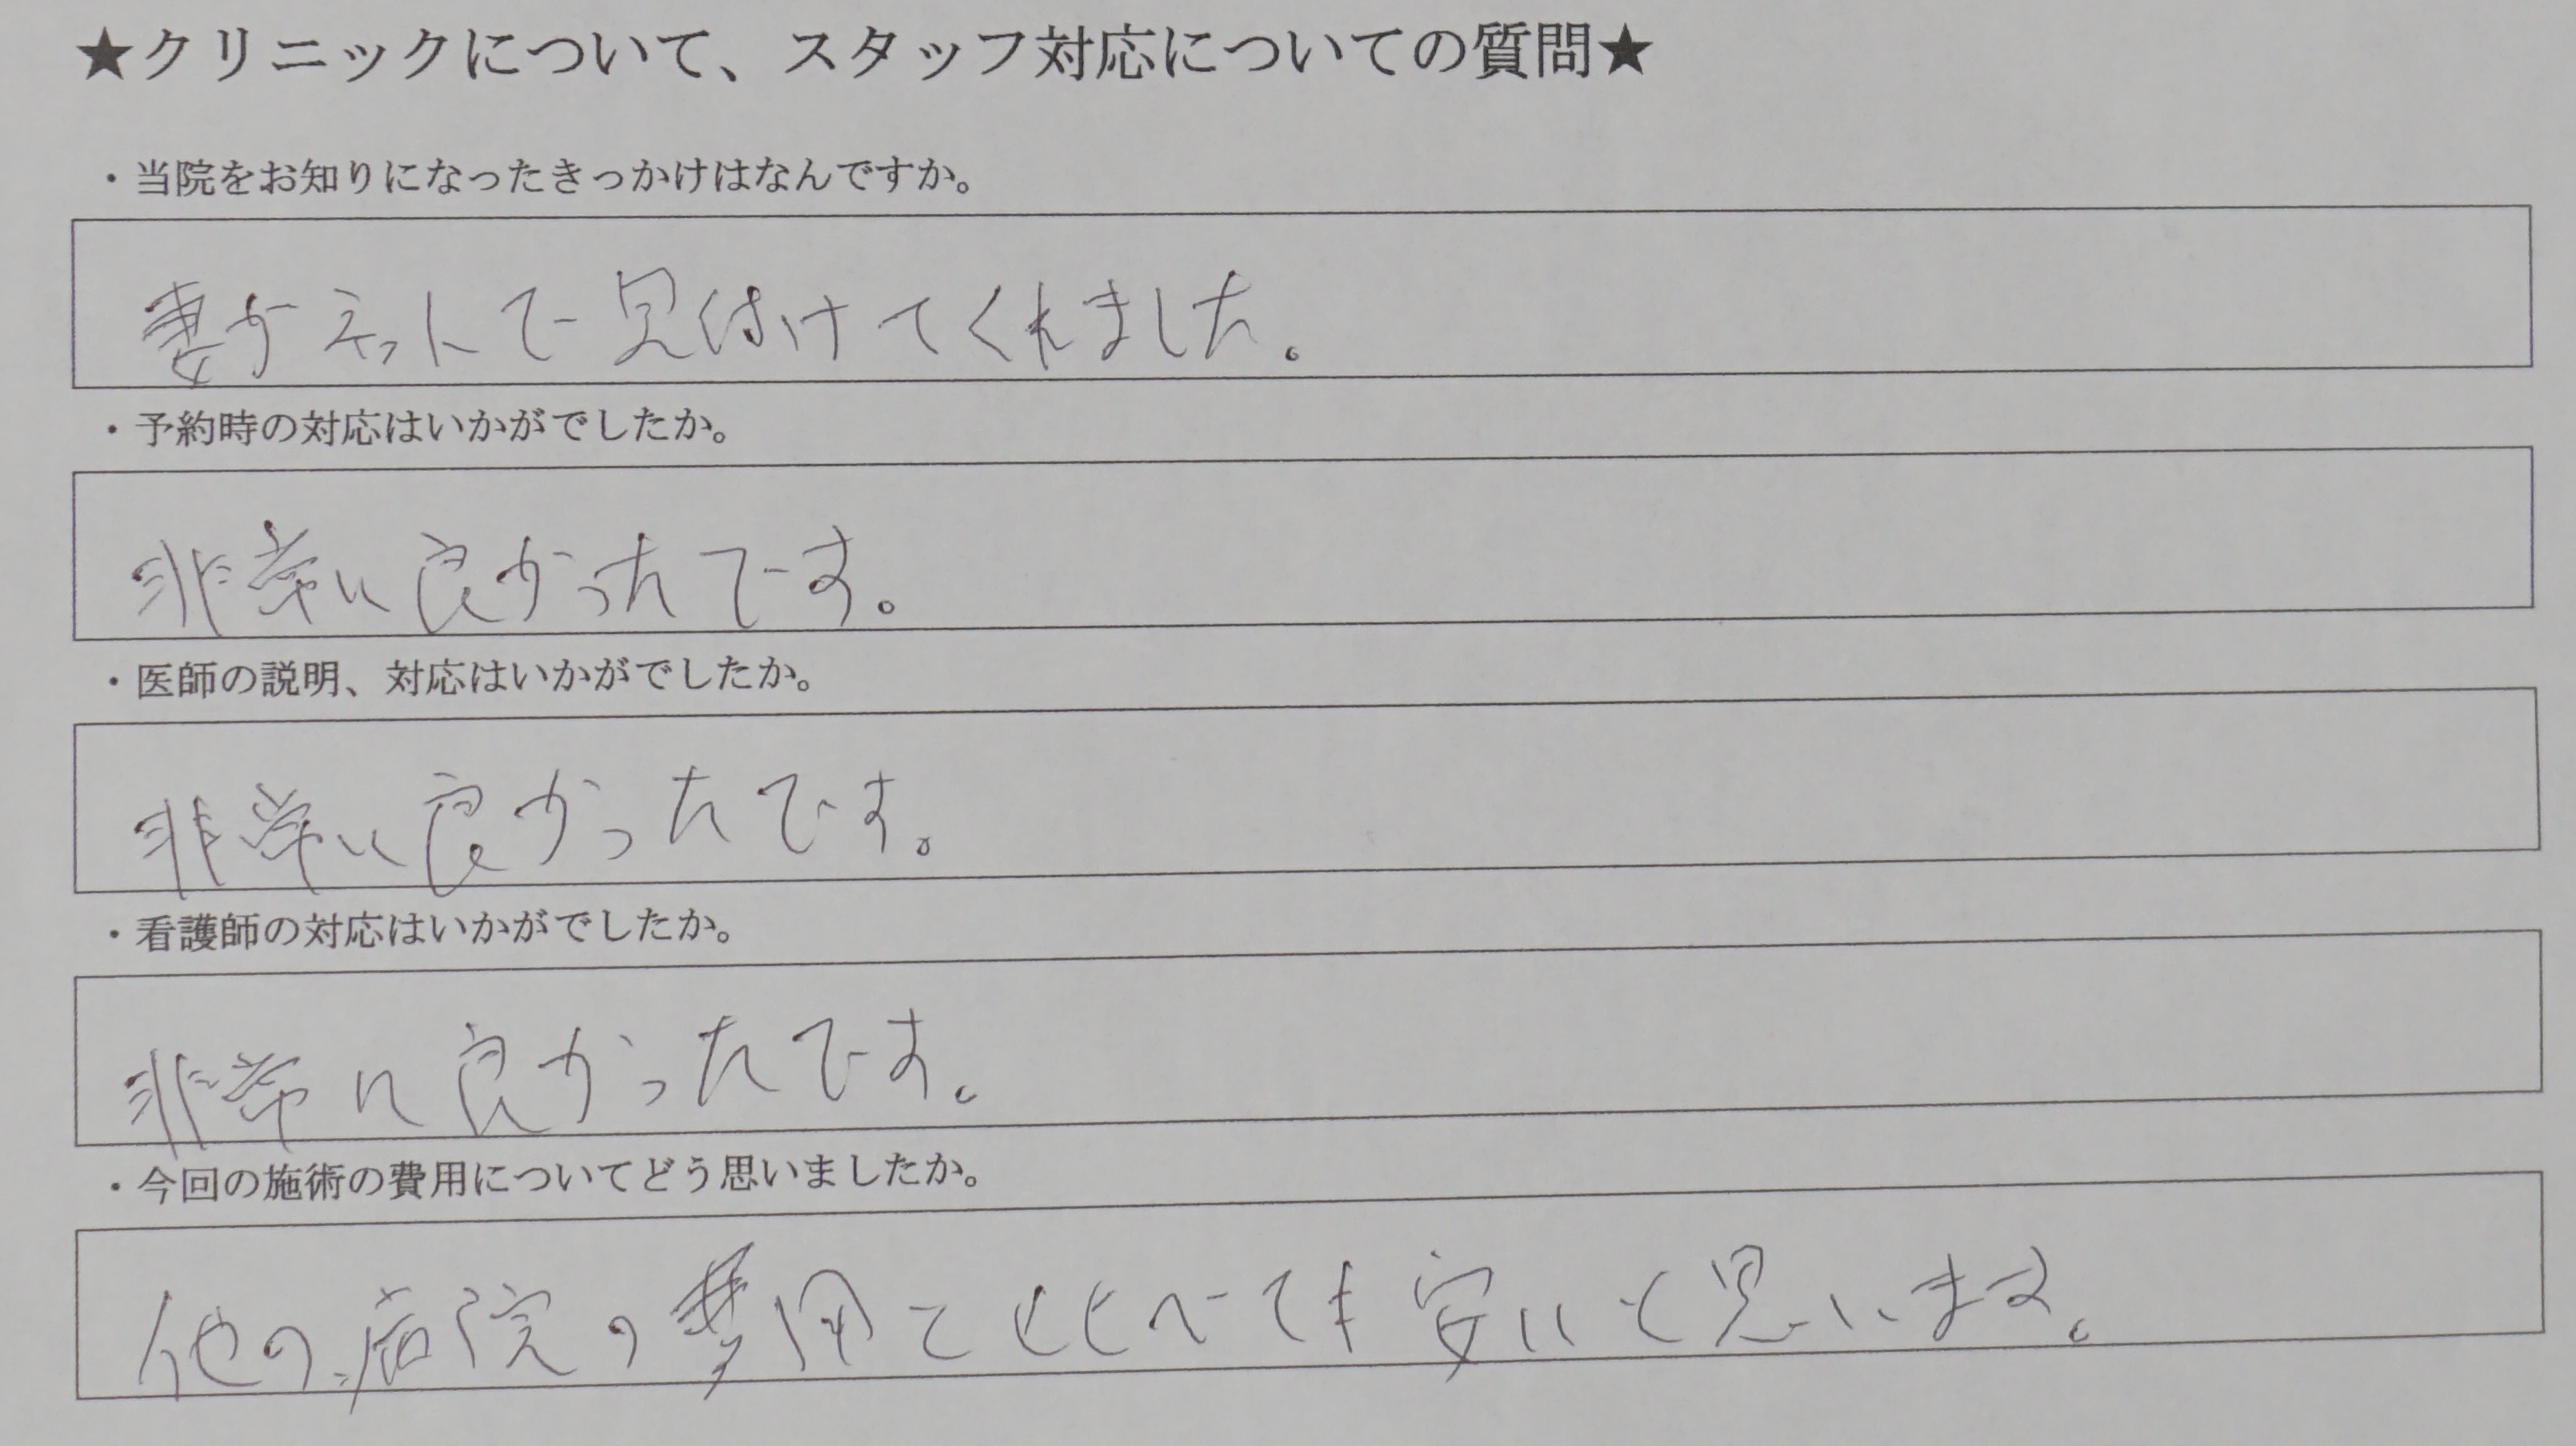 ★クリニックについて、スタッフ対応についての質問★
・当院をお知りになったきっかけはなんですか。
妻がネットで見付けてくれました。
・予約時の対応はいかがでしたか。
非常に良かったです。
・医師の説明、対応はいかがでしたか。
非常に良かったです。
・看護師の対応はいかがでしたか。
非常に良かったです。
・今回の施術の費用についてどう思いましたか。
他の病院の費用と比べても安いと思います。